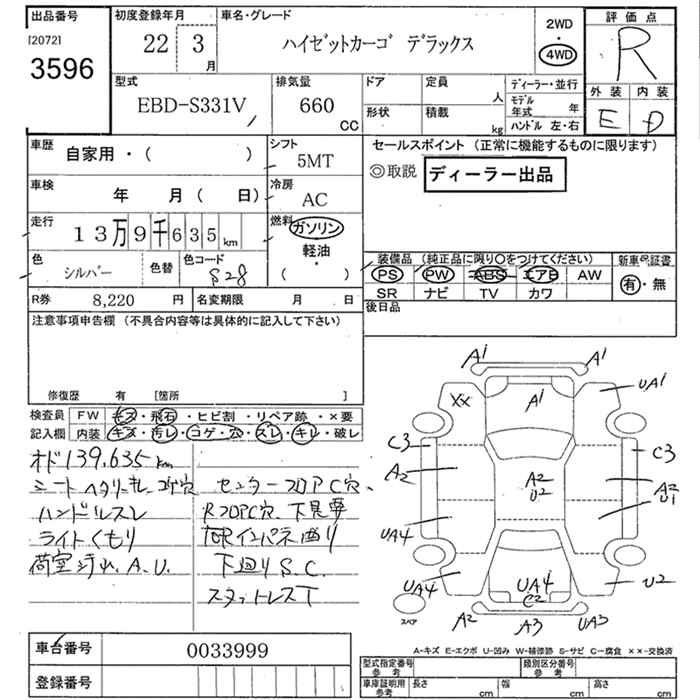 出品番号
[2072]
3596
初度登録年月
22 3
月
車名・グレード
ハイゼットカーゴ デラックス
2WD
・
4WD
評価点
R
外装 内装
E D
型式
EBD-S331V
排気量
660
CC
ドア
定員
人
形状
積載
kg
ディーラー・並行
モデル年式 年
ハンドル 左・右
車歴
自家用・( )
シフト
5MT
セールスポイント (正常に機能するものに限ります)
◎取説 ディーラー出品
車検
年 月( 日)
冷房
AC
走行
13万9千635km
燃料
ガソリン
軽油・
( )
色
シルバー
色替
色コード
S28
装備品 (純正品に限り○をつけてください)
新車保証書
PS PW ABS エアB AW
有・無
SR ナビ TV カワ
R券 8,220 円
名変期限 月 日
後日品
注意事項申告欄 (不具合内容等は具体的に記入して下さい)
修復歴 有 [箇所 ]
検査員
記入欄
FW キズ・飛石・ヒビ割・リペア跡・×要
内装 キズ・汚レ・コゲ・穴・スレ・キレ・破レ
オド139,635km
シートヘタリ・キレ・コゲ穴
ハンドルスレ
ライトくもり
荷室汚れ.A.U.
センターフロアC穴、
RフロアC穴.下見要
下廻りS.C.
スタットレスT
A1
A1
XX
A1
UA1
C3
C3
A2
A2
U2
A2
U1
UA4
UA4
UA4
C2
U2
A2
A3
UA3
スペア
A-キズ E-エクボ U-凹み W-補修跡 S-サビ C-腐食 ××-交換済
車台番号
0033999
登録番号
型式指定番号
参考
類別区分番号
参考
車庫証明用
参考
長さ cm
幅 cm
高さ cm